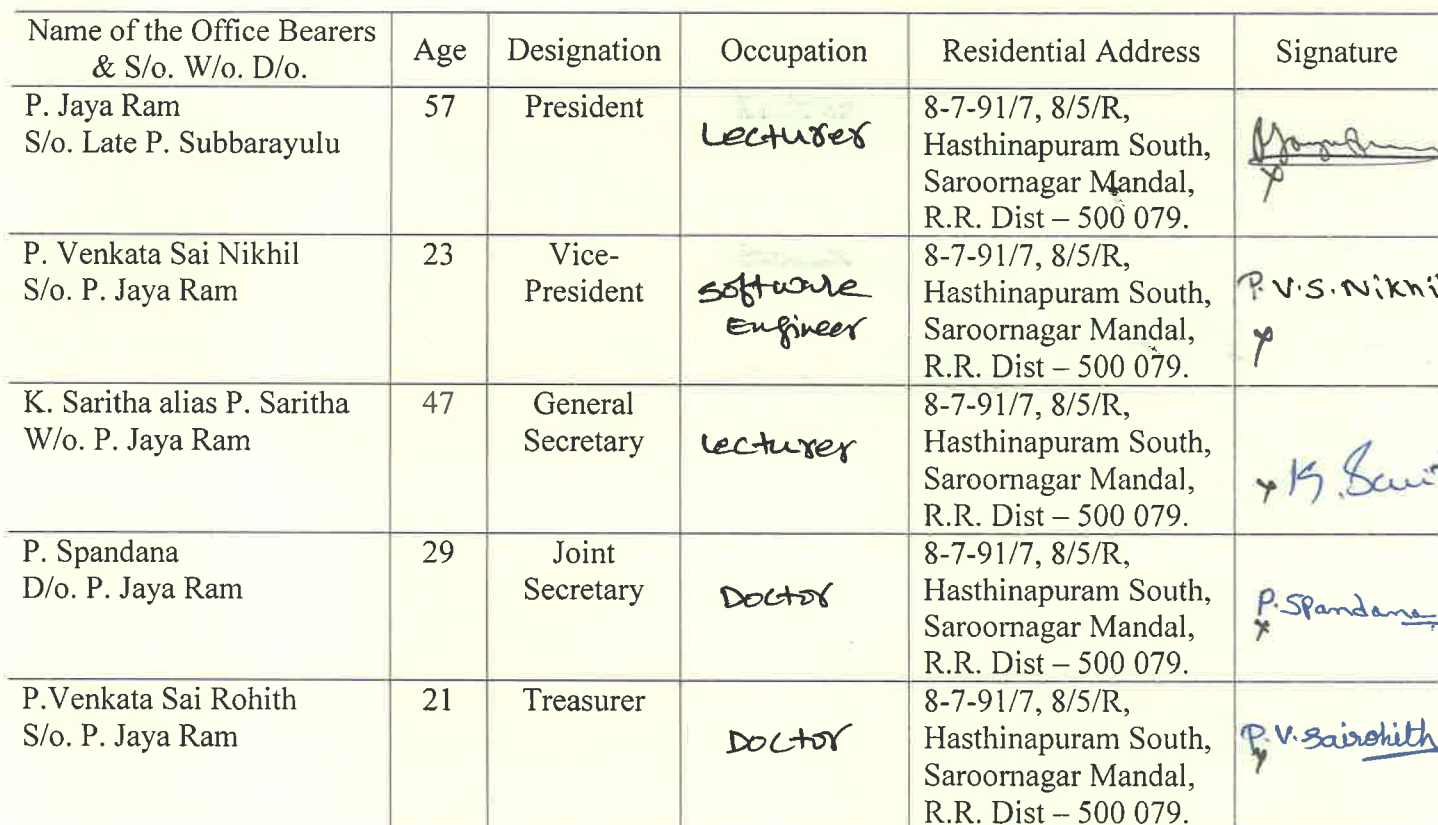 Name of the Office Bearers & S/o. W/o. D/o. Age Designation Occupation Residential Address Signature
P. Jaya Ram
S/o. Late P. Subbarayulu
57
President
Lecturer
8-7-91/7, 8/5/R,
Hasthinapuram South,
Saroornagar Mandal,
R.R. Dist – 500 079.
P. Venkata Sai Nikhil
S/o. P. Jaya Ram
23
Vice-
President
Software
Engineer
8-7-91/7, 8/5/R,
Hasthinapuram South,
Saroornagar Mandal,
R.R. Dist – 500 079.
P. V. S. Nikhi
K. Saritha alias P. Saritha
W/o. P. Jaya Ram
47
General
Secretary
Lecturer
8-7-91/7, 8/5/R,
Hasthinapuram South,
Saroornagar Mandal,
R.R. Dist – 500 079.
K. Sari
P. Spandana
D/o. P. Jaya Ram
29
Joint
Secretary
Doctor
8-7-91/7, 8/5/R,
Hasthinapuram South,
Saroornagar Mandal,
R.R. Dist – 500 079.
P. Spandana
P.Venkata Sai Rohith
S/o. P. Jaya Ram
21
Treasurer
Doctor
8-7-91/7, 8/5/R,
Hasthinapuram South,
Saroornagar Mandal,
R.R. Dist – 500 079.
P. V. Sairohith